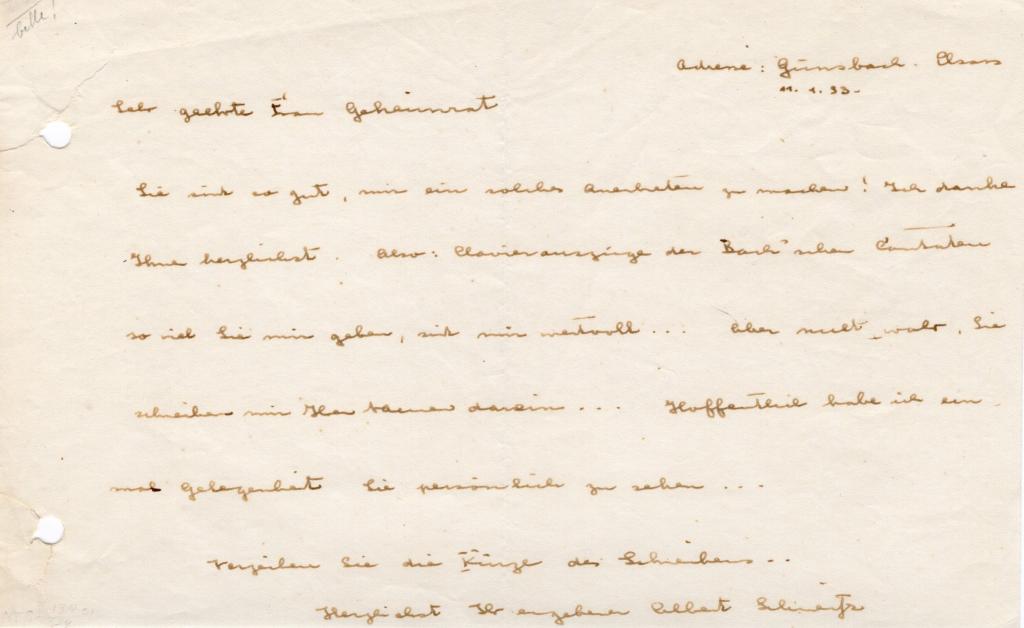 bitte!
Adresse: Günsbach. Elsass
11. 1. 33.
Sehr geehrte Frau Geheimrat
Sie sind so gut, mir ein solches Anerbieten zu machen! Ich danke
Ihnen herzlichst. Also: Clavierauszüge der Bach'schen Cantaten
so viel Sie mir geben, sind mir wertvoll... Aber nicht wahr, Sie
schreiben mir Ihren Namen darein... Hoffentlich habe ich ein
mal Gelegenheit Sie persönlich zu sehen...
Verzeihen Sie die Kürze des Schreibens..
Herzlichst Ihr ergebener Albert Schweitzer